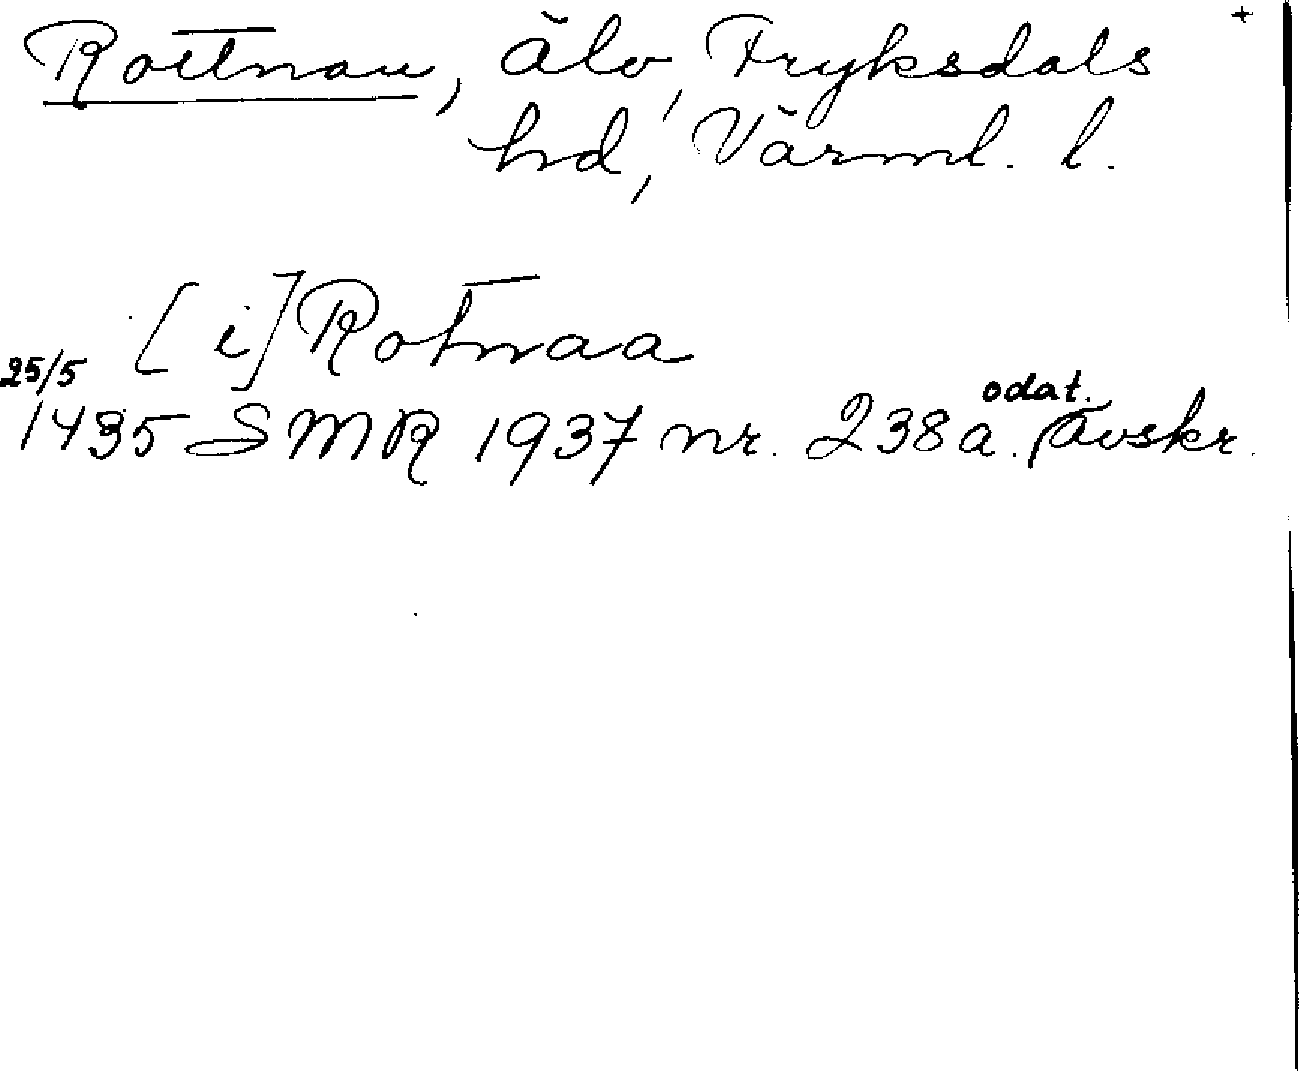 Rottnan, älv, Fryksdals +
hd, Värml. l.
[i] Rotnaa
25/5
1435 SMR 1937 nr. 238a. odat. avskr.